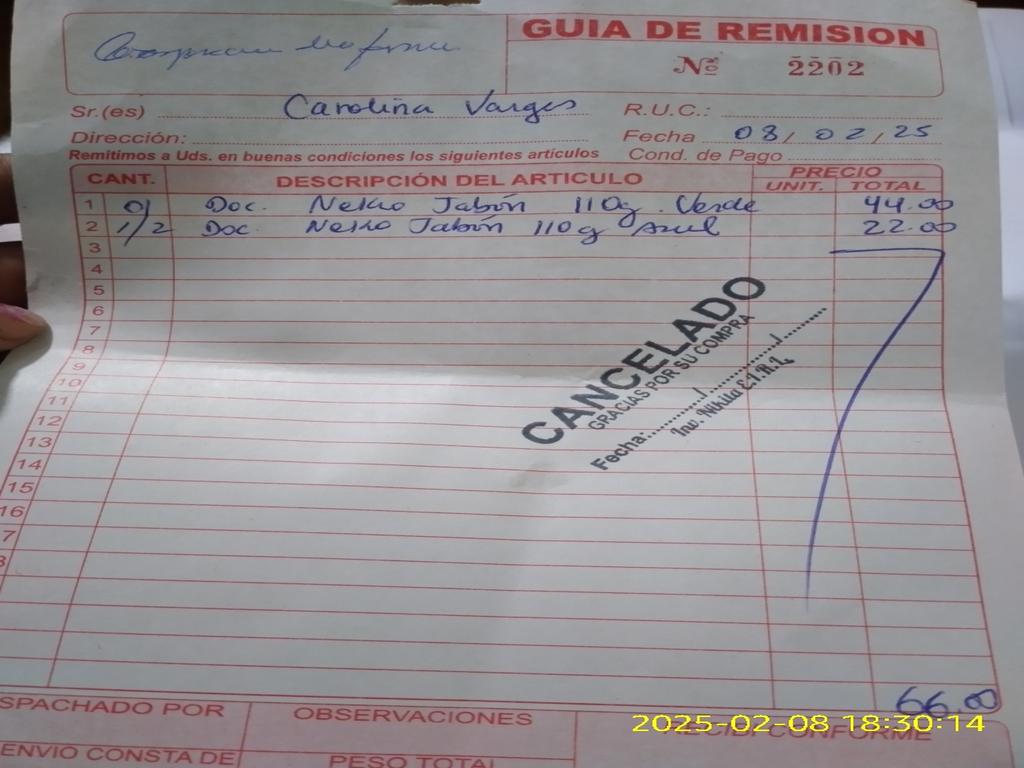 GUIA DE REMISION
Nº 2202
Sr.(es) Carolina Vargas R.U.C.:
Dirección: Fecha 08/02/25
Remitimos a Uds. en buenas condiciones los siguientes articulos Cond. de Pago
CANT. DESCRIPCIÓN DEL ARTICULO PRECIO
UNIT. TOTAL
1 01 Doc. Neko Jabón 110g. Verde 44.00
2 1/2 Doc. Neko Jabón 110g Azul 22.00
3
4
5
6
7
8
9
10
11
12
13
14
15
16
7
8
CANCELADO
GRACIAS POR SU COMPRA
Fecha:......./......./.......
Inv. Nikita E.I.R.L
66.00
SPACHADO POR OBSERVACIONES RECIBI CONFORME
2025-02-08 18:30:14
ENVIO CONSTA DE PESO TOTAL